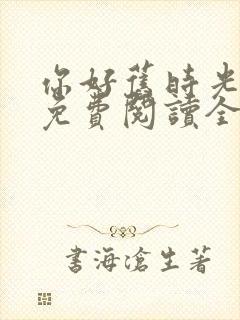 你好舊時光
免費閱讀全
書海滄生著